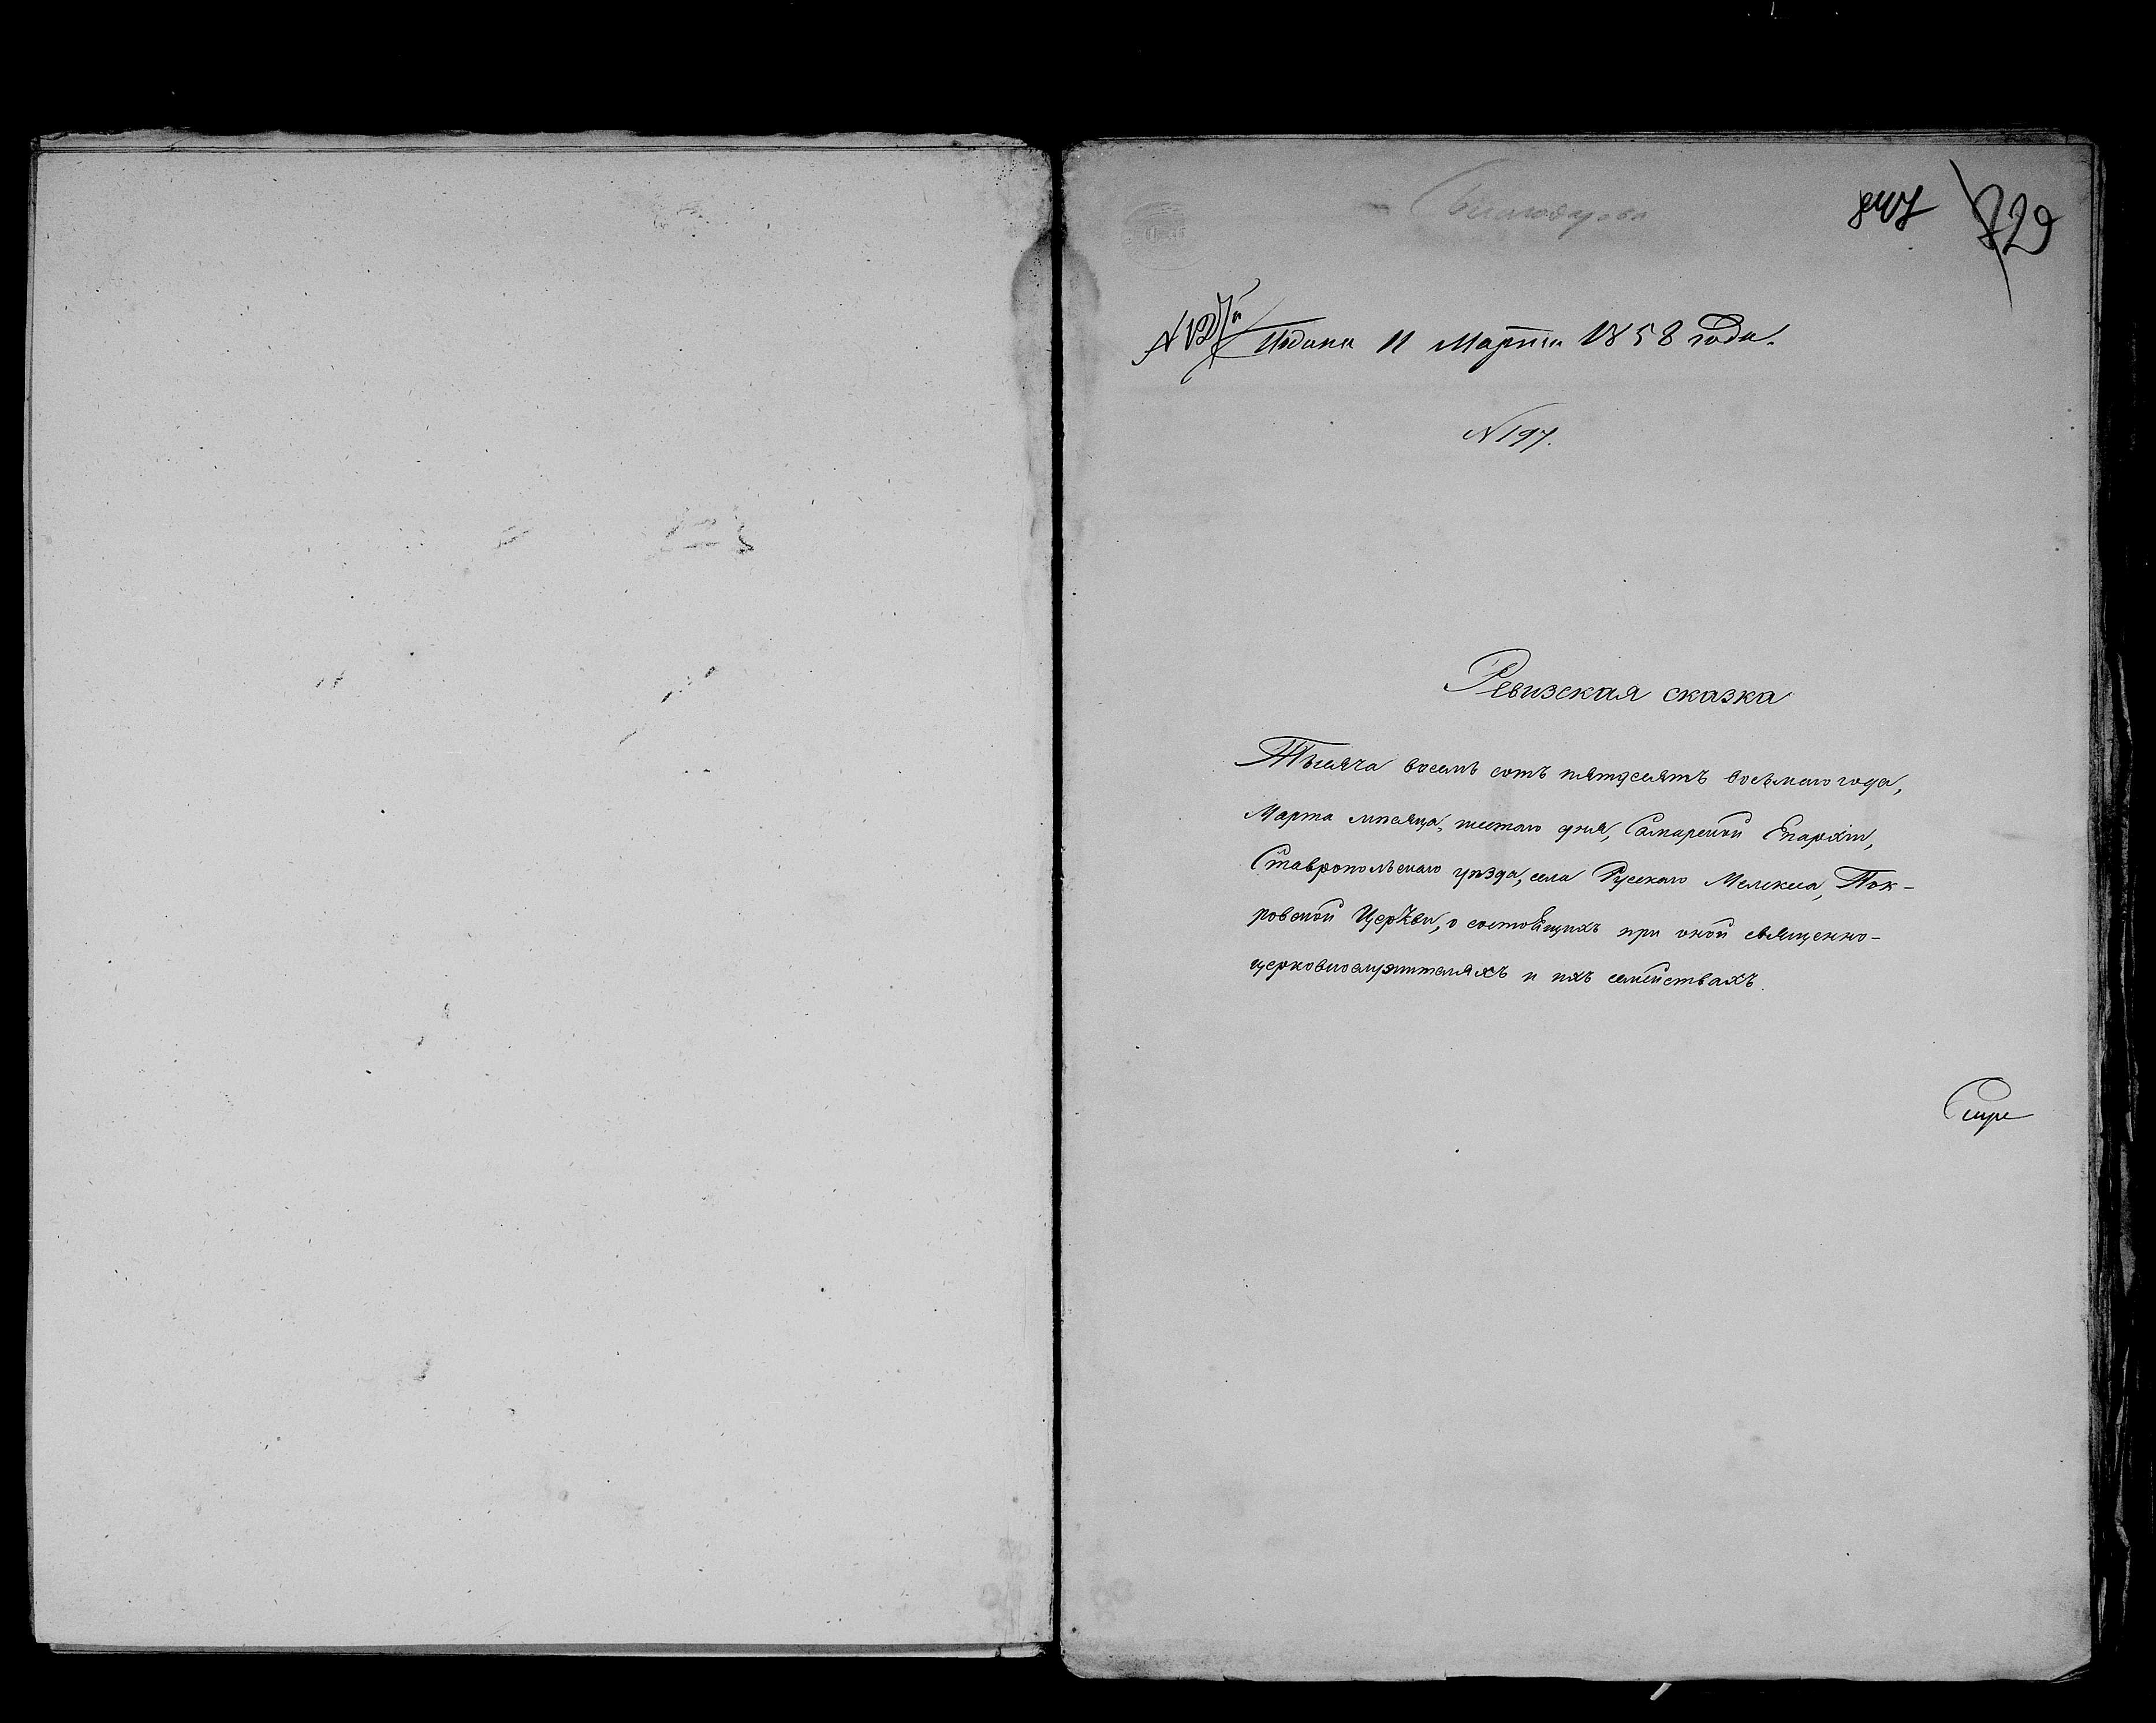 847 729
Подана 11 Марта 1858 года.
N 197.
Ревизская сказка
Тысяча восемь сотъ пятдесятъ восьмаго года,
Марта мѣсяца, шестаго дня, Самарской Епархіи,
Ставропольскаго уѣзда, села Русскаго Мелекеса, Пок-
ровской Церкви, о состоящихъ при оной священно-
церковнослужителяхъ и ихъ семействахъ.